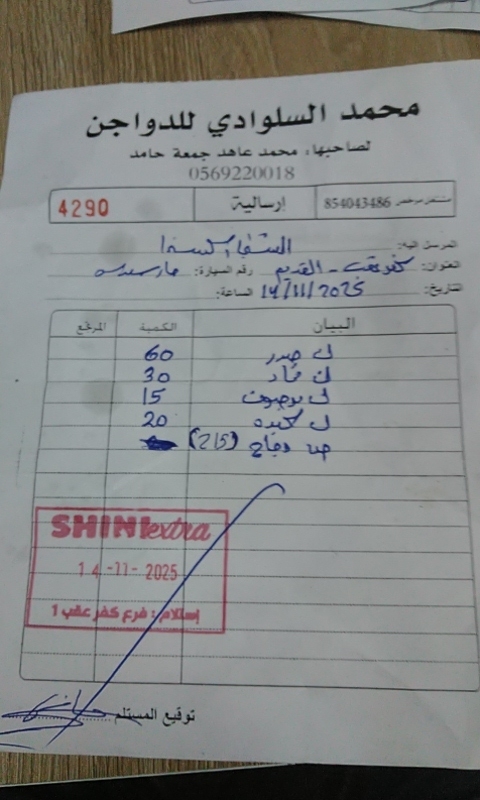 محمد السلوادي للدواجن
لصاحبها: محمد عاهد جمعة حامد
0569220018
مشتغل مرخص 854043486
إرسالية
4290
المرسل اليه:
العنوان: كفر عقب - القديم رقم السيارة: مارسيدس
التاريخ: 14/11/2025 الساعة:
البيان الكمية المرتجع
ك صدر 60
ك فخاد 30
ك بوصوت 15
ك كبده 20
دجاج (215)
SHINI extra
14-11-2025
إستلام: فرع كفر عقب 1
توقيع المستلم